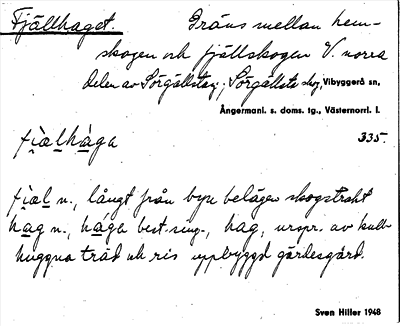 Fjällhaget. Gräns mellan hem-
skogen och fjällskogen V. norra
delen av Sörgällstav, Sörgällsta skog, Vibyggerå sn,
Ångermanl. s. doms. tg., Västernorrl. l.
fìalhàga 335.
fìal n., långt från byn belägen skogstrakt
hag n., hága best. sing., hag, urspr. av kull-
huggna träd och ris uppbyggd gärdesgård.
Sven Hiller 1948